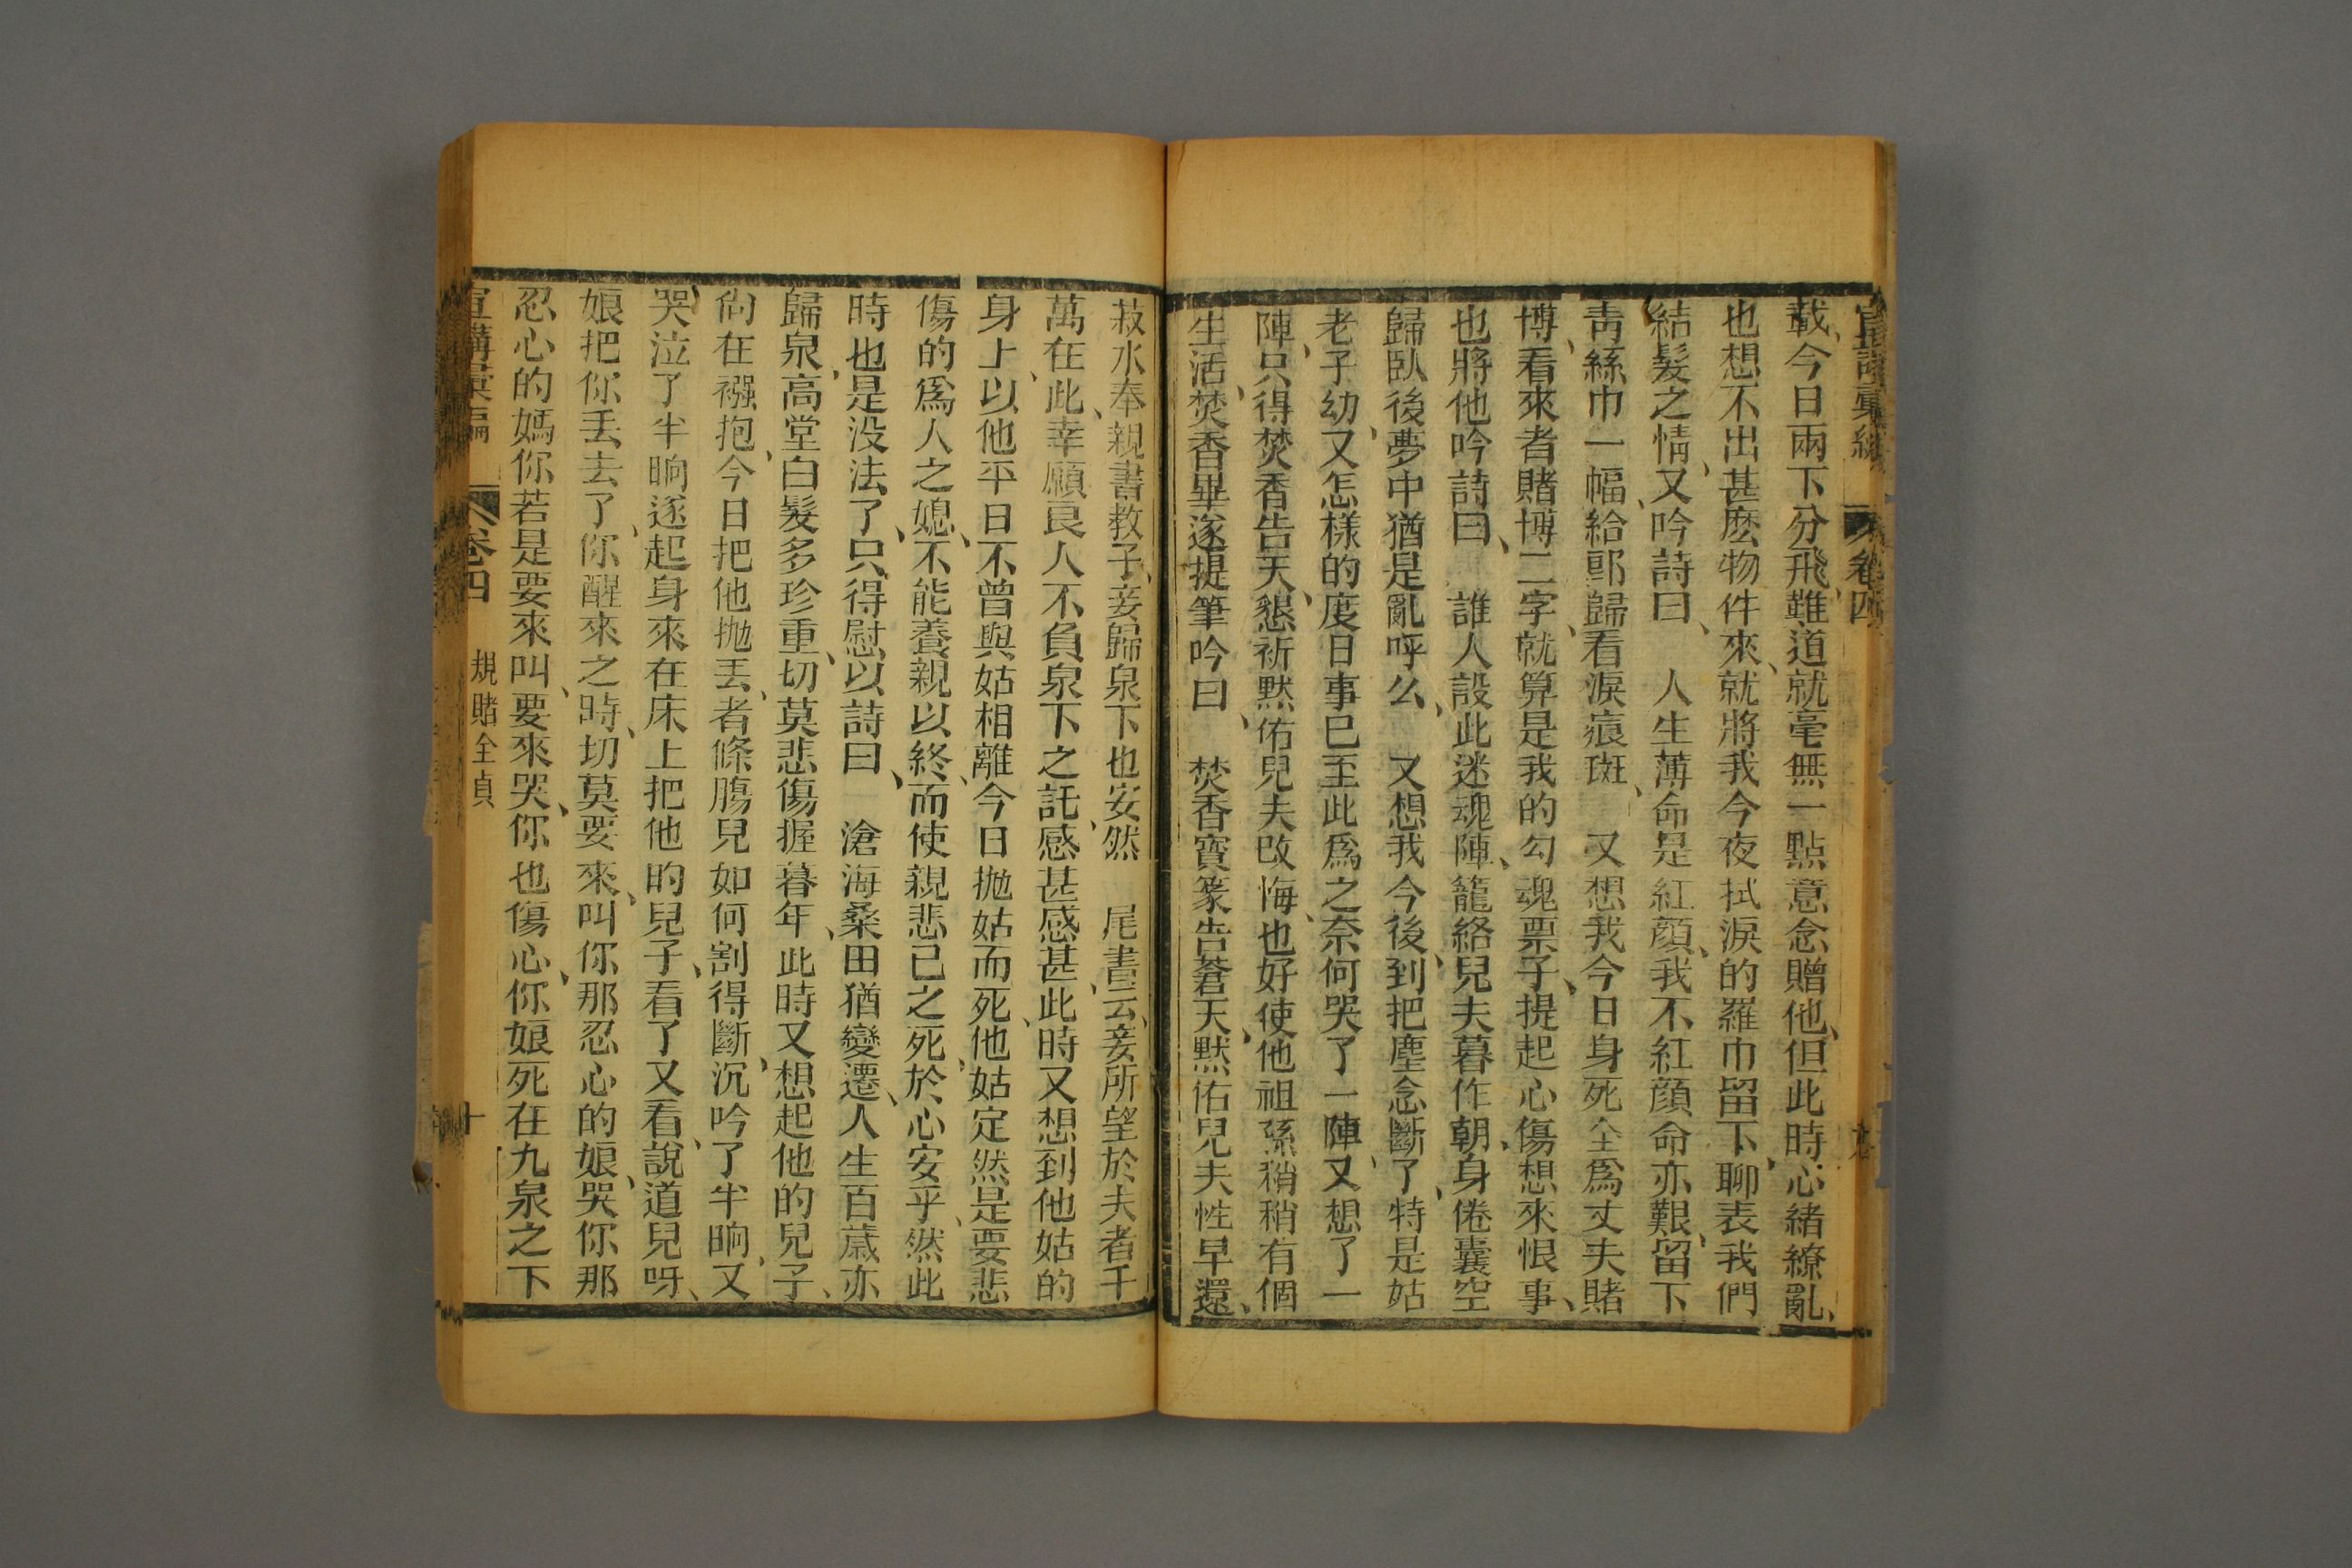 宣講彙編 卷四 九
載、今日兩下分飛、難道就毫無一點意念贈他、但此時心緒繚亂、
也想不出甚麽物件來、就將我今夜拭淚的羅巾留下、聊表我們
結髮之情、又吟詩曰、 人生薄命是紅顏、我不紅顏命亦艱、留下
靑絲巾一幅、給郎歸看淚痕斑、 又想我今日身死全爲丈夫賭
博、看來者賭博二字、就算是我的勾魂票子、提起心傷想來恨事、
也將他吟詩曰、 誰人設此迷魂陣、籠絡兒夫暮作朝、身倦囊空
歸臥後、夢中猶是亂呼么、 又想我今後、到把塵念斷了、特是姑
老子幼、又怎樣的度日事已至此爲之奈何哭了一陣、又想了一
陣、只得焚香告天、懇祈默佑兒夫改悔、也好使他祖孫稍稍有個
生活、焚香畢遂提筆吟曰、 焚香寶篆告蒼天、默佑兒夫性早還、
菽水奉親書教子、妾歸泉下也安然 尾書云、妾所望於夫者千
萬在此、幸願良人不負泉下之託、感甚感甚、此時又想到他姑的
身上、以他平日不曾與姑相離今日拋姑而死、他姑定然是要悲
傷的爲人之媳、不能養親以終、而使親悲己之死、於心安乎、然此
時也是没法了、只得慰以詩曰、 滄海桑田猶變遷、人生百歲亦
歸泉、高堂白髮多珍重、切莫悲傷握暮年、此時又想起他的兒子、
尙在襁抱、今日把他拋丟、者條腸兒如何割得斷、沉吟了半晌、又
哭泣了半晌遂起身來在床上把他的兒子、看了又看、說道兒呀、
娘把你丟去了、你醒來之時、切莫要來、叫你那忍心的娘、哭你那
忍心的媽你若是要來叫、要來哭、你也傷心、你娘死在九泉之下
宣講彙編 卷四 規賭全貞 十